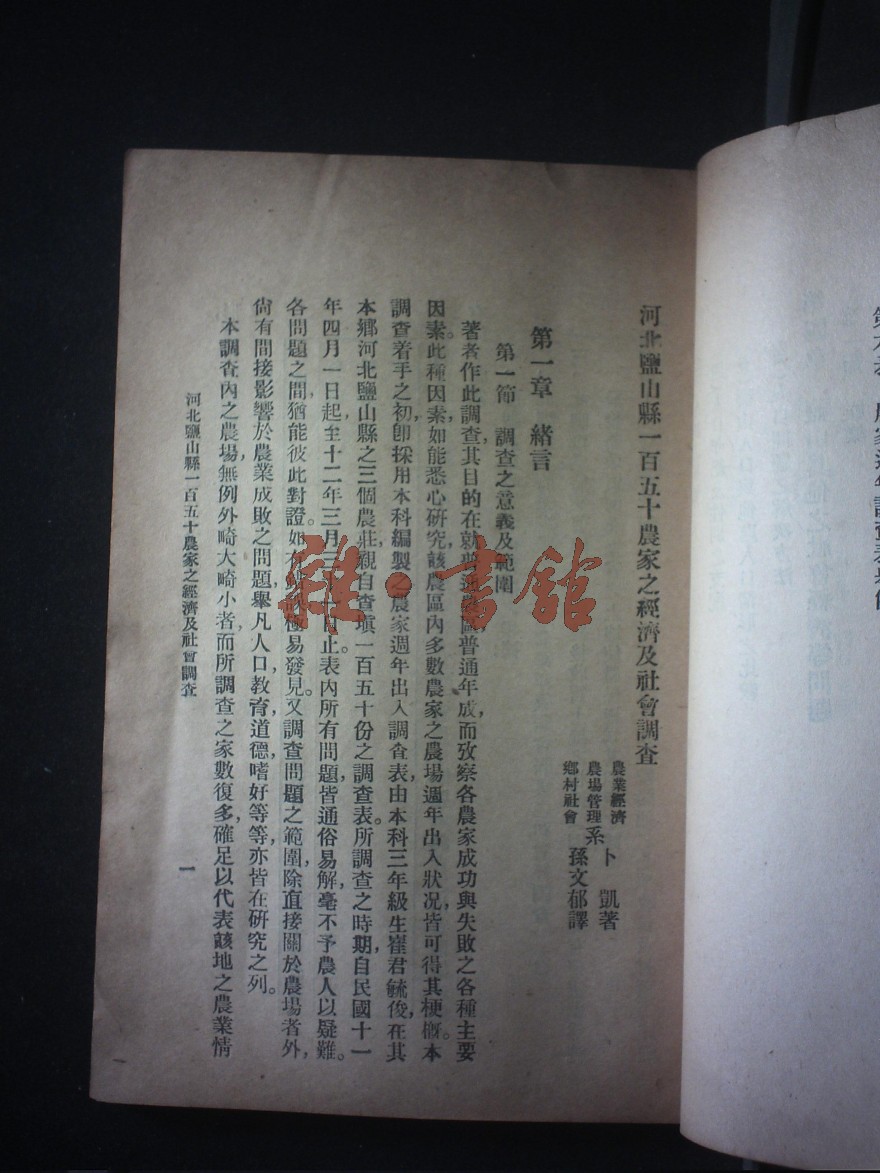 河北鹽山縣一百五十農家之經濟及社會調查
農業經濟
農場管理系 卜凱著
鄉村社會 孫文郁譯
第一章 緒言
第一節 調查之意義及範圍
著者作此調查,其目的在就普通農區普通年成,而攷察各農家成功與失敗之各種主要
因素。此種因素如能悉心研究,該農區內多數農家之農場週年出入狀况,皆可得其梗概。本
調查着手之初,卽採用本科編製之農家週年出入調查表,由本科三年級生崔君毓俊,在其
本鄉河北鹽山縣之三個農莊,親自查塡一百五十份之調查表。所調查之時期,自民國十一
年四月一日起,至十二年三月三十一日止。表內所有問題,皆通俗易解,毫不予農人以疑難。
各問題之間,猶能彼此對證。如有錯誤,極易發見。又調查問題之範圍,除直接關於農場者外,
尙有間接影響於農業成敗之問題,舉凡人口,教育,道德,嗜好等等,亦皆在研究之列。
本調查內之農場,無例外畸大畸小者,而所調查之家數復多,確足以代表該地之農業情
河北鹽山縣一百五十農家之經濟及社會調查
一
雜·書館